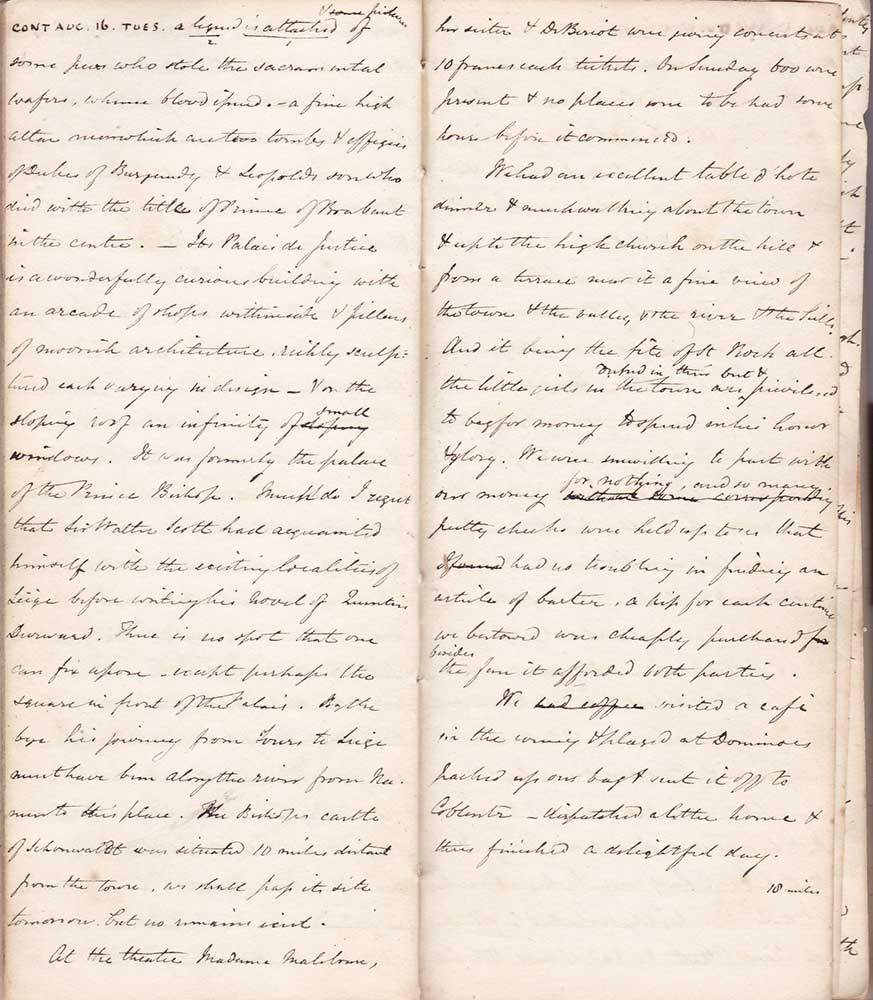 & some pictures
CONT AUG. 16. TUES. a legend is attached of
2 1
some Jews who stole the sacramental
wafers, whence blood issued. – a fine high
altar near which are two tombs & effigies
of Dukes of Burgundy & Leopolds son who
died with the title of Prince of Brabant
in the centre. – Its Palais de Justice
is a wonderfully curious building with
an arcade of shops withinside & pillars
of moorish architecture richly sculp-
tured each varying in design – & on the
small
sloping roof an infinity of sloping
windows. It was formerly the palace
of the Prince Bishop. Much do I regret
that Sir Walter Scott had acquainted
himself with the existing localities of
Liège before writing his novel of Quentin
Durward. There is no spot that one
can fix upon except perhaps the
square in front of the Palais. By the
bye his journey from Tours to Liege
must have been along the river from Na-
mur to this place. The Bishops castle
of Schonwaldt was situated 10 miles distant
from the town, we shall pass its site
tomorrow but no remains exist.
At the theatre Madame Malibran,
her sister & De Beriot were giving concerts at
10 francs each tickets. On Sunday 600 were
present & no places were to be had some
hours before it commenced.
We had an excellent table d'hote
dinner & much walking about the town
& up to the high church on the hill &
from a terrace near it a fine view of
the town & the valley, & the river & the hills.
And it being the fête of St Roch all
Dressed in their best &
the little girls in the town are privileged
to beg for money to spend in his honor
& glory. We were unwilling to part with
for nothing, and so many
our money without some corresponding
pretty cheeks were held up to us that
I found had no troubling in finding an
article of barter, a kiss for each centime
we bestowed was cheaply purchased for
besides
the fun it afforded both parties.
We had coffee visited a café
in the evening & played at Dominoes
packed up our bag & sent it off to
Coblentz – dispatched a letter home &
thus finished a delightful day.
18 miles